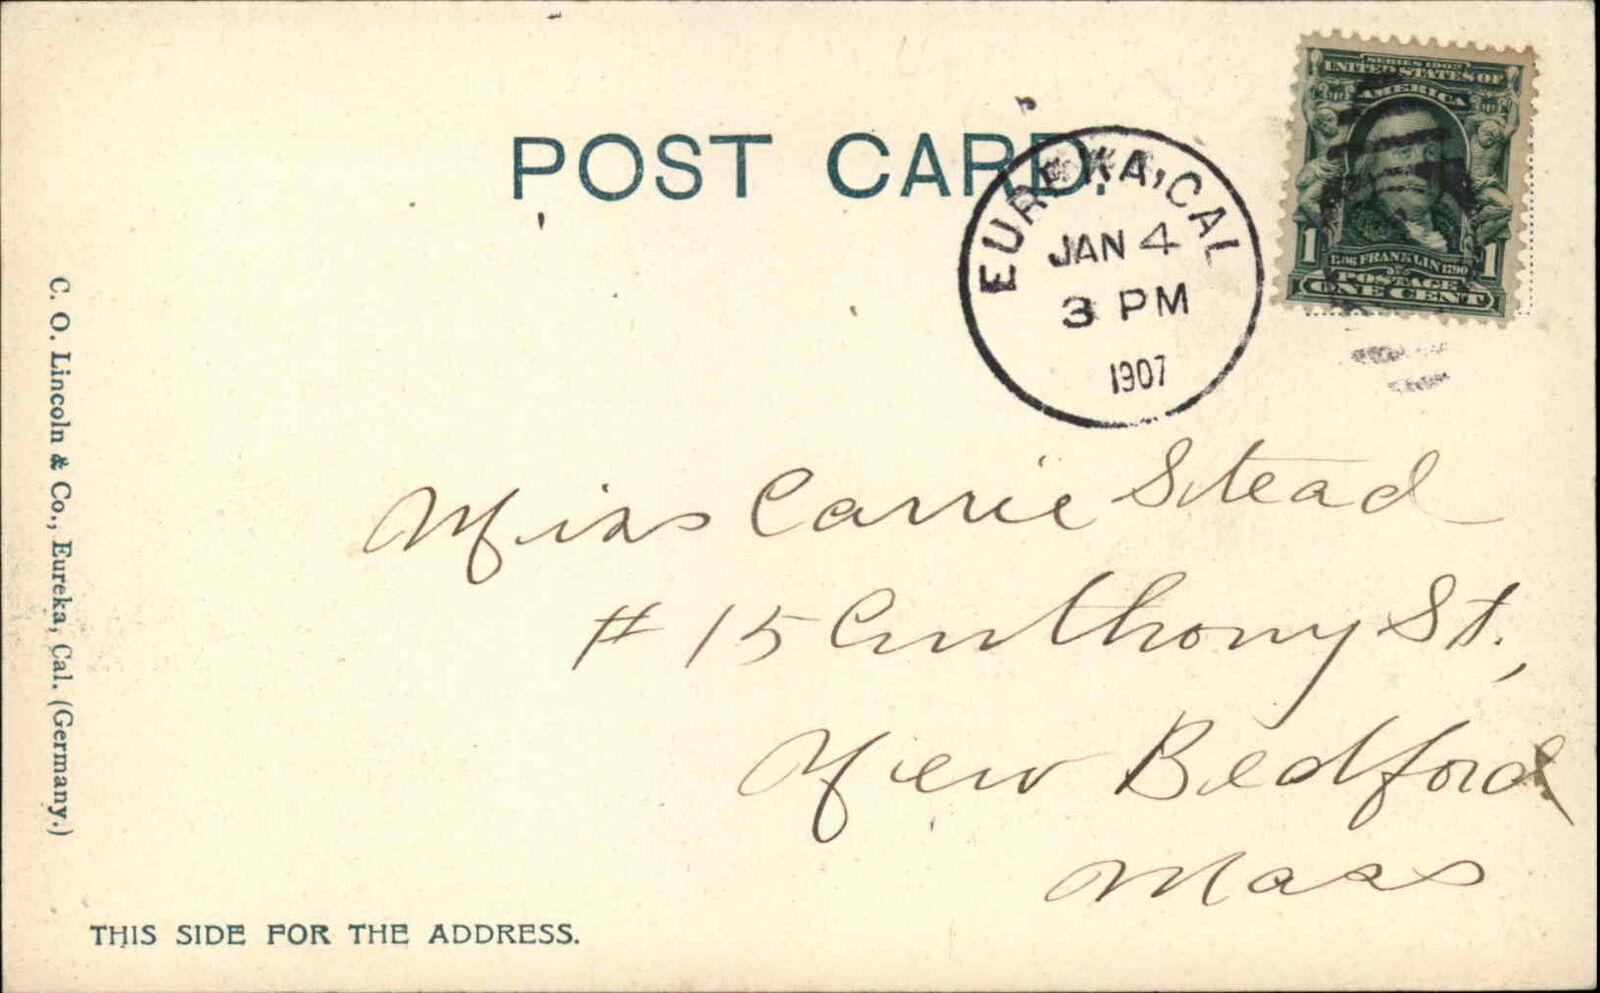 POST CARD.
EUREKA, CAL
JAN 4
3 PM
1907
SERIES 1902
UNITED STATES OF
AMERICA
1706 FRANKLIN 1790
POSTAGE
1 ONE CENT 1
Miss Carrie Stead
# 15 Anthony St.,
New Bedford
Mass
C. O. Lincoln & Co., Eureka, Cal. (Germany.)
THIS SIDE FOR THE ADDRESS.